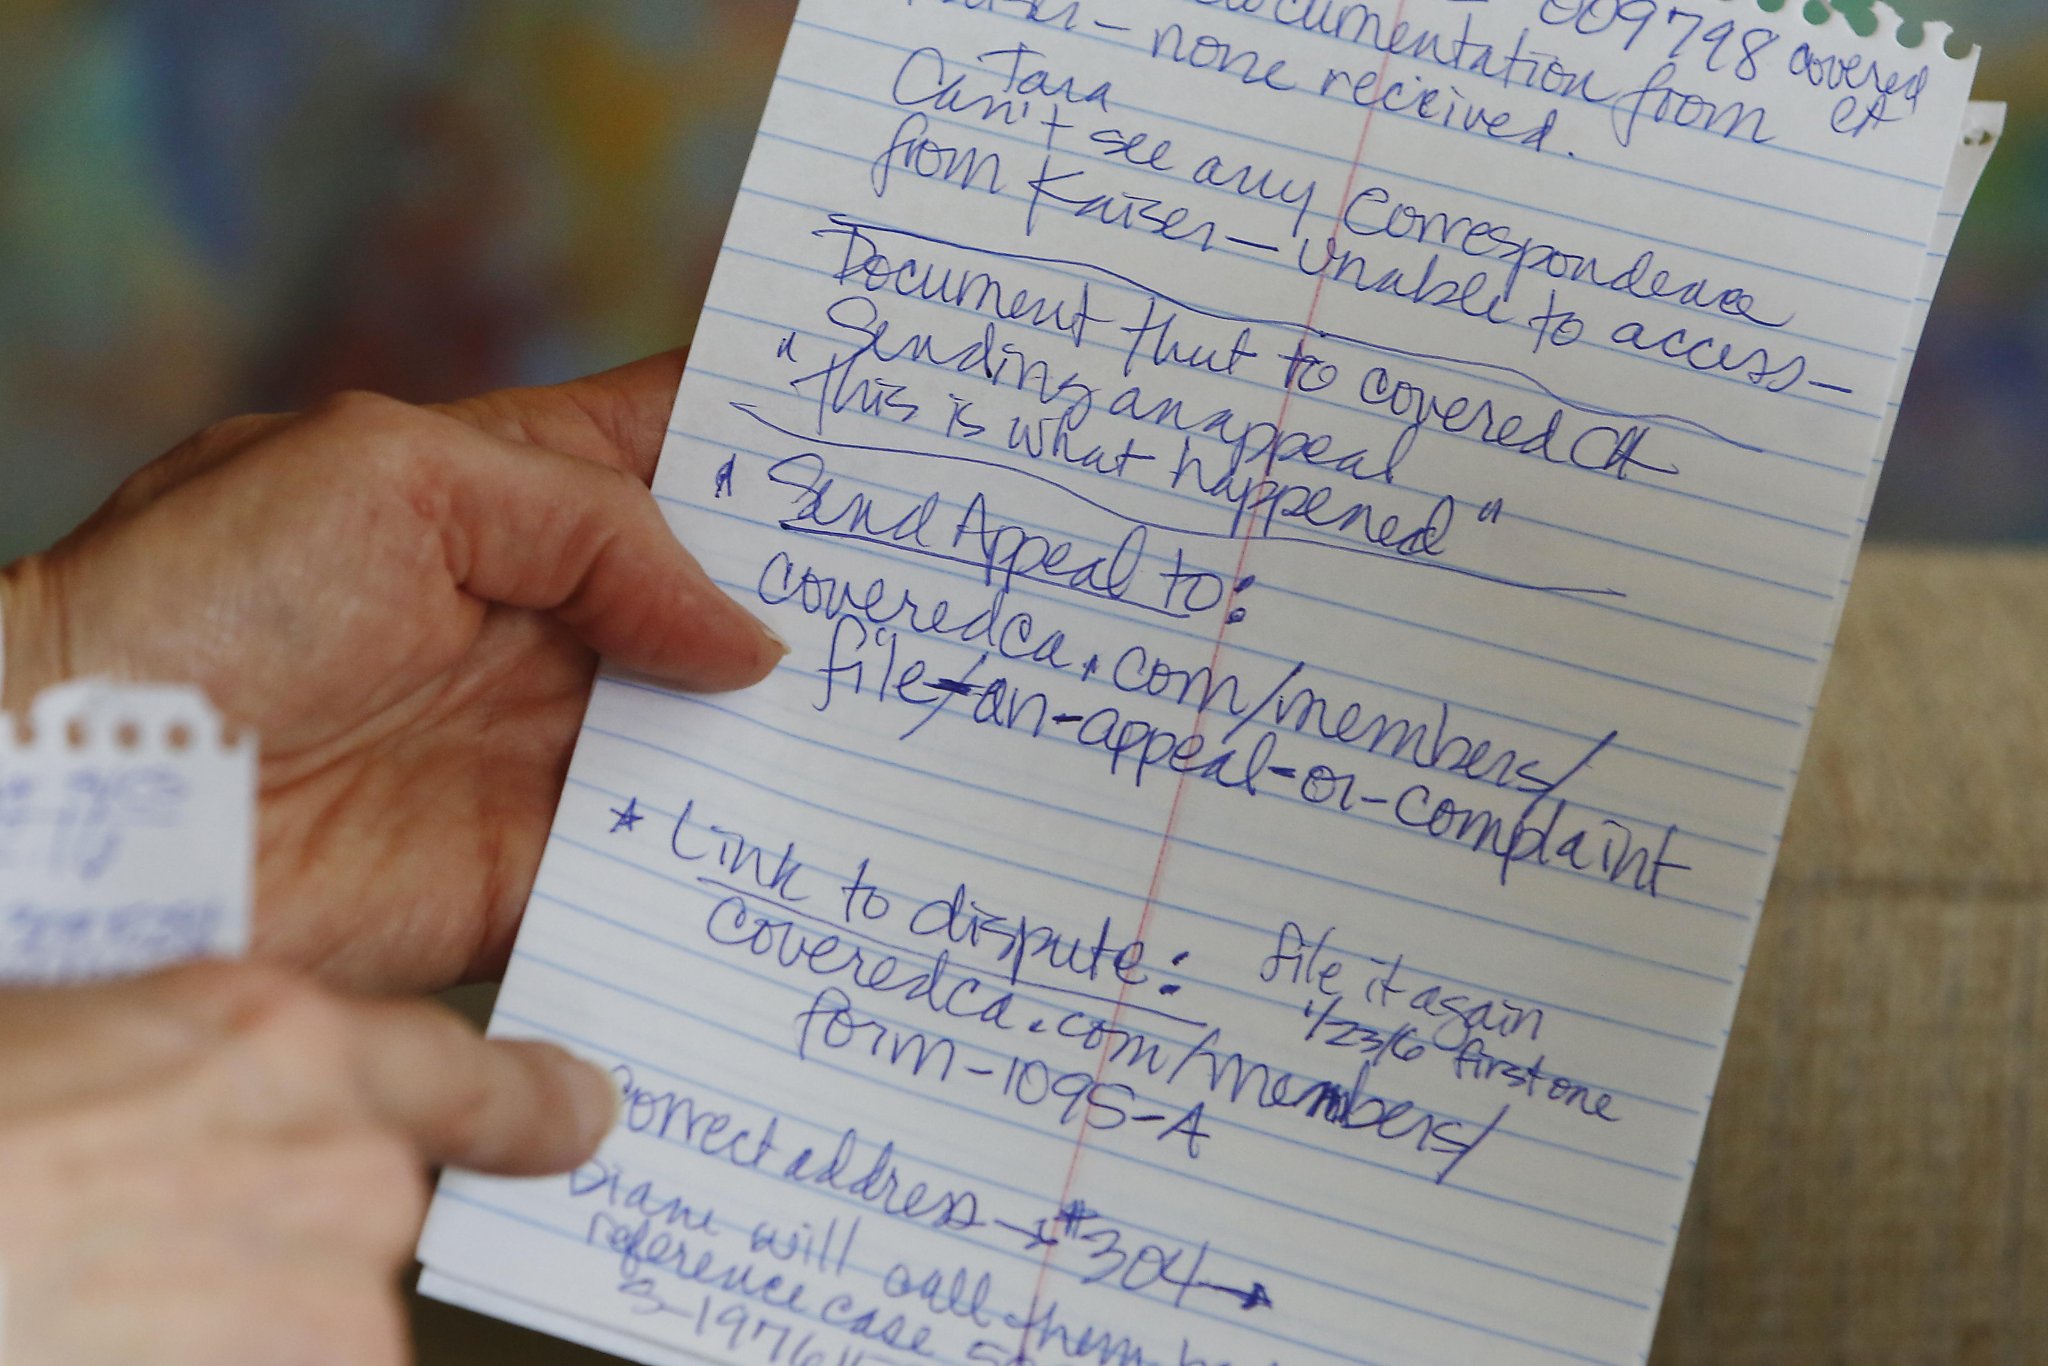 009798 covered
documentation from CA
Kaiser – none received.
Tara
Can't see any Correspondence
from Kaiser – unable to access –
Document that to covered CA
Sending an appeal
"This is what happened"
" Send Appeal to:
coveredca.com/members/
file-an-appeal-or-complaint
* Link to dispute:
coveredca.com/members/
form-1095-A
file it again
1/23/6 first one
Correct address → #304 →
Diane will call them
reference case
3-1976